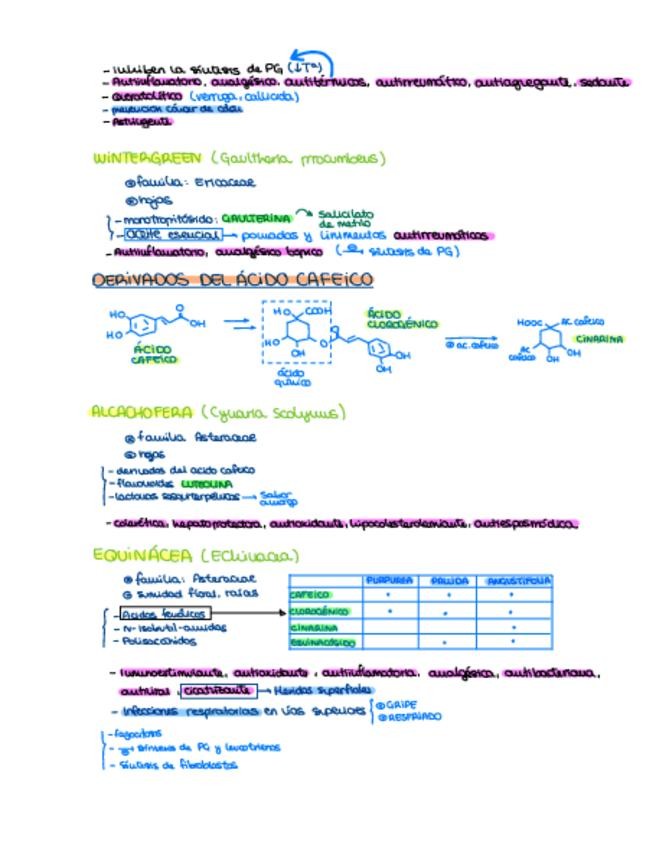 - inhiben la síntesis de PG (↓Tª)
- Antiinflamatorio, analgésico, antitérmicos, antirreumático, antiagregante, sedante
- Queratolítico (verruga, callicida)
- prevención cáncer de colon
- Astringente
WINTERGREEN (Gaultheria procumbens)
familia: Ericaceae
hojas
- monotropitósido: GAULTERINA → Salicilato de metilo
- aceite esencial → pomadas y linimentos antirreumáticos
- Antiinflamatorio, analgésico tópico ( síntesis de PG)
DERIVADOS DEL ÁCIDO CAFEICO
HO HO O OH
ÁCIDO CAFEICO
HO COOH HO OH O O OH OH
ácido quínico
ÁCIDO CLOROGÉNICO
ac. cafeico
HOOC AC cafeico AC cafeico OH OH
CINARINA
ALCACHOFERA (Cynara Scolymus)
familia Asteraceae
hojas
- derivados del ácido cafeico
- flavonoides LUTEOLINA
- lactonas sesquiterpénicas → Sabor amargo
- colerética, hepatoprotectora, antioxidante, hipocolesterolemiante, antiespasmódica.
EQUINÁCEA (Echinacea)
familia: Asteraceae
sumidad floral, raíces
- Ácidos fenólicos
- N-Isobutil-amidas
- Polisacáridos
PURPUREA PALLIDA ANGUSTIFOLIA
CAFEICO • • •
CLOROGÉNICO • • •
CINARINA •
EQUINACÓSIDO • •
- Inmunoestimulante, antioxidante, antiinflamatoria, analgésica, antibacteriana,
antiviral, cicatrizante → Heridas superficiales
- Infecciones respiratorias en vías superiores { GRIPE
RESFRIADO
- fagocitosis
- síntesis de PG y leucotrienos
- síntesis de fibroblastos